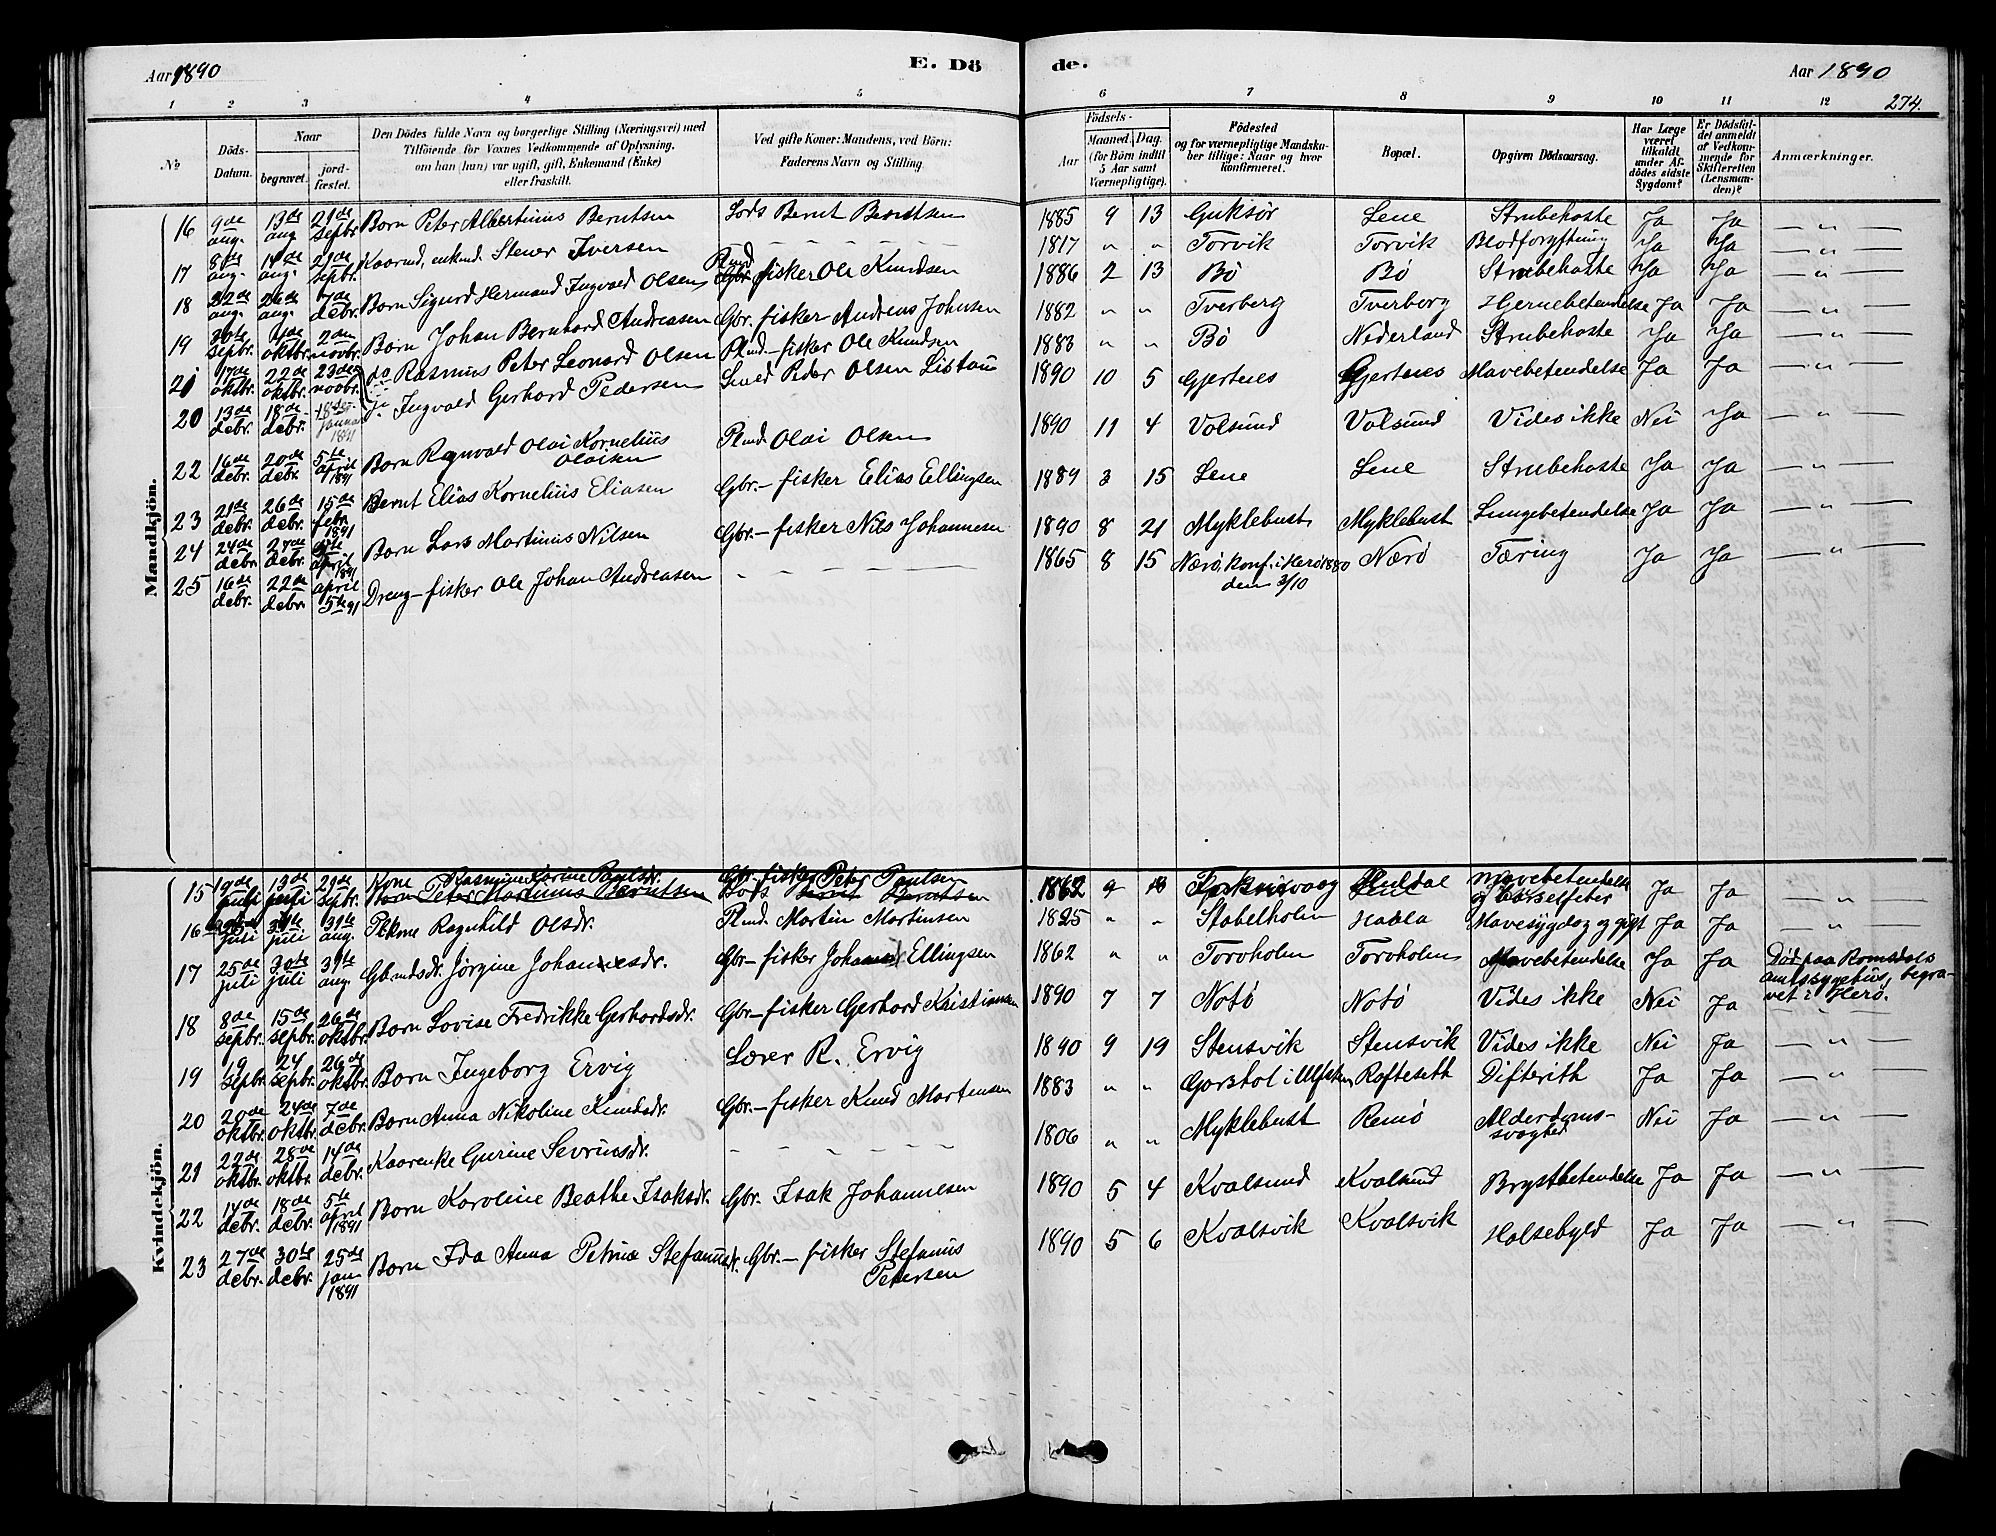 Aar 1890
E. Dö
de.
Aar 1890
274.
1 2 3 4 5 6 7 8 9 10 11 12
No
Döds-Datum.
Naar
begravet.
jord-fæstet.
Den Dödes fulde Navn og borgerlige Stilling (Næringsvei) med
Tilföiende for Voxnes Vedkommende af Oplysning,
om han (hun) var ugift, gift, Enkemand (Enke)
eller fraskilt.
Ved gifte Koner: Mandens, ved Börn:
Faderens Navn og Stilling
Födsels-
Aar
Maaned. Dag.
(for Börn indtil
5 Aar samt
Værnepligtige).
Födested
og for værnepligtige Mandska-
ber tillige: Naar og hvor
konfirmeret.
Bopæl.
Opgiven Dödsaarsag.
Har Læge
været
tilkaldt
under Af-
dödes sidste
Sygdom?
Er Dödsfal-
det anmeldt
af Vedkom-
mende for
Skifteretten
(Lensman-
den)?
Anmærkninger.
Mandkjön.
16 9de aug. 13de aug 21de sepbr. Barn Peter Albertinus Berntsen Lods Bernt Berntsen 1885 9 13 Guksør Lene Strubehoste Ja Ja — " —
17 8de aug. 14de aug. 21de sepbr. Kaarmd, enkemd. Stener Iversen — — — 1817 " " Torvik Torvik Blodforgiftning Ja Ja — " —
18 22de aug. 26de aug. 7de debr. Barn Sigurd Hermand Ingvald Olsen Plmd fisker Ole Knudsen 1886 2 13 Bø Bø Strubehoste Ja Ja — " —
19 30te sepbr. 4de oktbr. 2den novbr. Barn Johan Bernhard Andreasen Gbr. fisker Andreas Johnsen 1882 " " Tverberg Tverberg Hjernebetendelse Ja Ja — " —
21 17de oktbr. 22de oktbr. 23de novbr. do Rasmus Peter Leonard Olsen Plmd.-fisker Ole Knudsen 1883 " " Bø Nederland Strubehoste Ja Ja — " —
20 13de debr. 18de debr. 18de januar 1891 do Ingvald Gerhard Pedersen Smed Peder Olsen Listau 1890 10 5 Gjertnes Gjertnes Mavebetendelse Ja Ja — " —
22 16de debr. 20de debr. 5te april 1891 Barn Ragnvald Olai Kornelius Olaisen Plmd Olai Olsen 1890 11 4 Volsund Volsund Vides ikke Nei Ja — " —
23 21de debr. 26de debr. 15de febr. 1891 Bernt Elias Kornelius Eliasen Gbr.- fisker Elias Ellingsen 1889 3 15 Lene Lene Strubehoste Ja Ja — " —
24 24de debr. 27de debr. april 1891 Barn Lars Martinus Nilsen Gbr.- fisker Nils Johannesen 1890 8 21 Myklebust Myklebust Lungebetendelse Ja Ja — " —
25 16de debr. 22de debr. april 5te 91 Dreng-fisker Ole Johan Andreasen — — — 1865 8 15 Nærø, konf. i Herø 1880 den 3/10 Nærø Tæring Ja Ja — " —
Kvindekjön.
15 juli 13de juli 21de sepbr. Kone Rasmine Karine Paulsdr. Gbr. fisker Peter Paulsen 1862 Mavebetendelse og Barselfeber Ja Ja — " —
Barn Peter Martinus Berntsen Lods Bernt Berntsen
16 juli juli 31te aug. Plkone Ragnhild Olsdr. Plmd. Martin Martinsen 1825 " " Stabelholm Hadla Mavesygdag og gigt Ja Ja — " —
17 25de juli 30te juli 31te aug. Gbrmdsdr. Jørgine Johannesdr. Gbr- fisker Johannes Ellingsen 1862 " " Torvholm Torvholm Mavebetendelse Ja Ja Død paa Romsdals amtssygehus, begra-vet i Herø.
18 8de sepbr. 15de sepbr. 26de oktbr. Barn Lovise Fredrikke Gerhardsdr. Gbr- fisker Gerhard Kristiansen 1890 7 7 Notø Notø Vides ikke Nei Ja — " —
19 19 sepbr. 24 sepbr. 26de oktbr. Barn Ingeborg Ervig Lærer R. Ervig 1890 9 19 Stensvik Stensvik Vides ikke Nei Ja — " —
20 20de oktbr. 24de oktbr. 7de debr. Barn Anna Nikoline Knudsdr. Gbr.- fisker Knud Martensen 1883 " " Garshol i Ulfsten Røfteseth Difterith Ja Ja — " —
21 22de oktbr. 28de oktbr. 14de debr. Kaarenke Gurine Sevrinsdr. — — — 1806 " " Myklebust Remø Alderdoms-svaghed Nei Ja — " —
22 14de debr. 18de debr. 5te april 1891 Barn Karoline Beathe Isaksdr. Gbr. Isak Johannesen 1890 5 4 Kvalsund Kvalsund Brystbetendelse Ja Ja — " —
23 27de debr. 30te debr. 25de jan 1891 Barn Ida Anna Petrine Stefanusdr. Gbr.- fisker Stefanus Petersen 1890 5 6 Kvalsvik Kvalsvik Halsebyld Ja Ja — " —